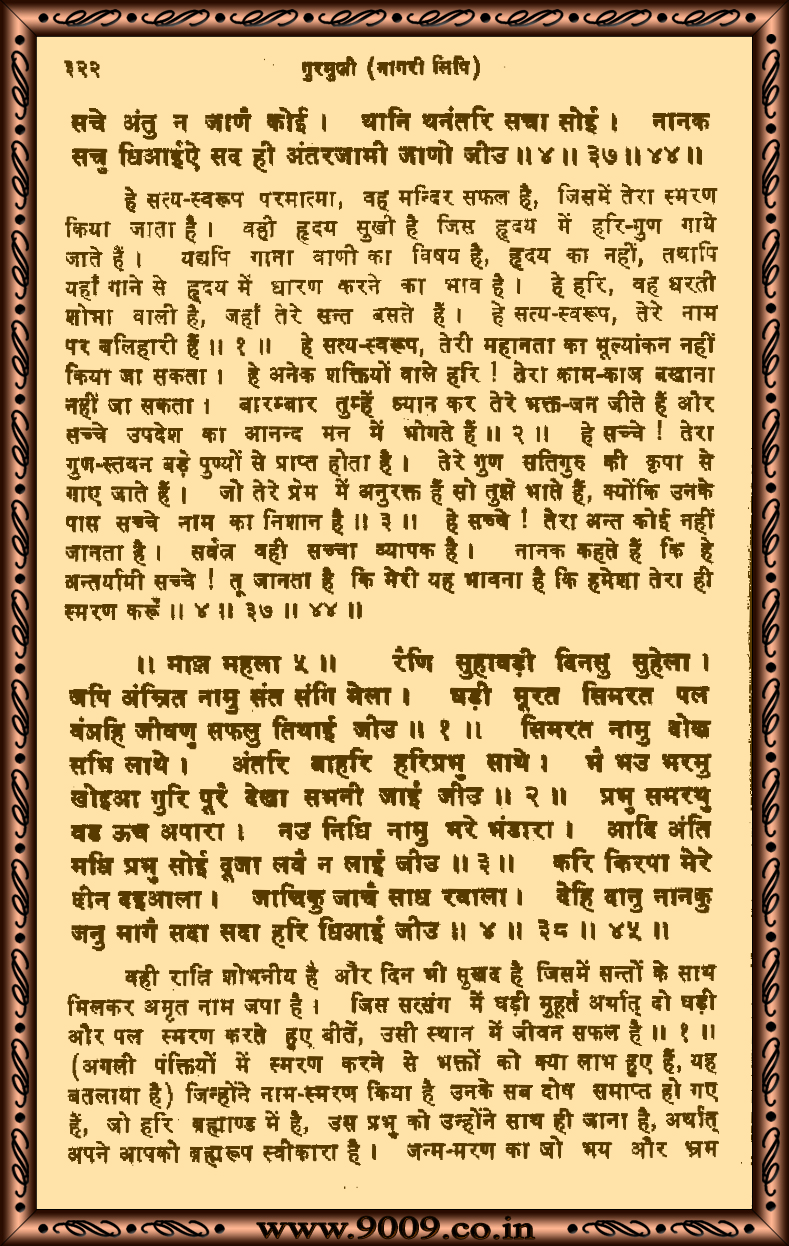 ३२२ गुरमुखी (नागरी लिपि)
सचे अंतु न जाणै कोई । थानि थनंतरि सचा सोई । नानक
सचु धिआईऐ सद ही अंतरजामी जाणो जीउ ॥ ४ ॥ ३७ ॥ ४४ ॥
हे सत्य-स्वरूप परमात्मा, वह मन्दिर सफल है, जिसमें तेरा स्मरण
किया जाता है । वही हृदय सुखी है जिस हृदय में हरि-गुण गाये
जाते हैं । यद्यपि गाना वाणी का विषय है, हृदय का नहीं, तथापि
यहाँ गाने से हृदय में धारण करने का भाव है । हे हरि, वह धरती
शोभा वाली है, जहाँ तेरे सन्त बसते हैं । हे सत्य-स्वरूप, तेरे नाम
पर बलिहारी हैं ॥ १ ॥ हे सत्य-स्वरूप, तेरी महानता का मूल्यांकन नहीं
किया जा सकता । हे अनेक शक्तियों वाले हरि ! तेरा काम-काज बखाना
नहीं जा सकता । बारम्बार तुम्हें ध्यान कर तेरे भक्त-जन जीते हैं और
सच्चे उपदेश का आनन्द मन में भोगते हैं ॥ २ ॥ हे सच्चे ! तेरा
गुण-स्तवन बड़े पुण्यों से प्राप्त होता है । तेरे गुण सतिगुरु की कृपा से
गाए जाते हैं । जो तेरे प्रेम में अनुरक्त हैं सो तुझे भाते हैं, क्योंकि उनके
पास सच्चे नाम का निशान है ॥ ३ ॥ हे सच्चे ! तेरा अन्त कोई नहीं
जानता है । सर्वत्र वही सच्चा व्यापक है । नानक कहते हैं कि हे
अन्तर्यामी सच्चे ! तू जानता है कि मेरी यह भावना है कि हमेशा तेरा ही
स्मरण करूँ ॥ ४ ॥ ३७ ॥ ४४ ॥
॥ माझ महला ५ ॥ रैणि सुहावड़ी दिनसु सुहेला ।
जपि अंम्रित नामु संत संगि मेला । घड़ी मूरत सिमरत पल
वंञहि जीवणु सफलु तिथाई जीउ ॥ १ ॥ सिमरत नामु दोख
सभि लाथे । अंतरि बाहरि हरिप्रभु साथे । भै भउ भरमु
खोइआ गुरि पूरै देखा सभनी जाई जीउ ॥ २ ॥ प्रभु समरथु
वड ऊच अपारा । नउ निधि नामु भरे भंडारा । आदि अंति
मधि प्रभु सोई दूजा लवै न लाई जीउ ॥ ३ ॥ करि किरपा मेरे
दीन दइआला । जाचिकु जाचै साध रवाला । देहि दानु नानकु
जनु मागै सदा सदा हरि धिआई जीउ ॥ ४ ॥ ३८ ॥ ४५ ॥
वही रात्रि शोभनीय है और दिन भी सुखद है जिसमें सन्तों के साथ
मिलकर अमृत नाम जपा है । जिस सत्संग में घड़ी मुहूर्त अर्थात् दो घड़ी
और पल स्मरण करते हुए बीतें, उसी स्थान में जीवन सफल है ॥ १ ॥
(अगली पंक्तियों में स्मरण करने से भक्तों को क्या लाभ हुए हैं, यह
बतलाया है) जिन्होंने नाम-स्मरण किया है उनके सब दोष समाप्त हो गए
हैं, जो हरि ब्रह्माण्ड में है, उस प्रभु को उन्होंने साथ ही जाना है, अर्थात्
अपने आपको ब्रह्मरूप स्वीकारा है । जन्म-मरण का जो भय और भ्रम
www.9009.co.in